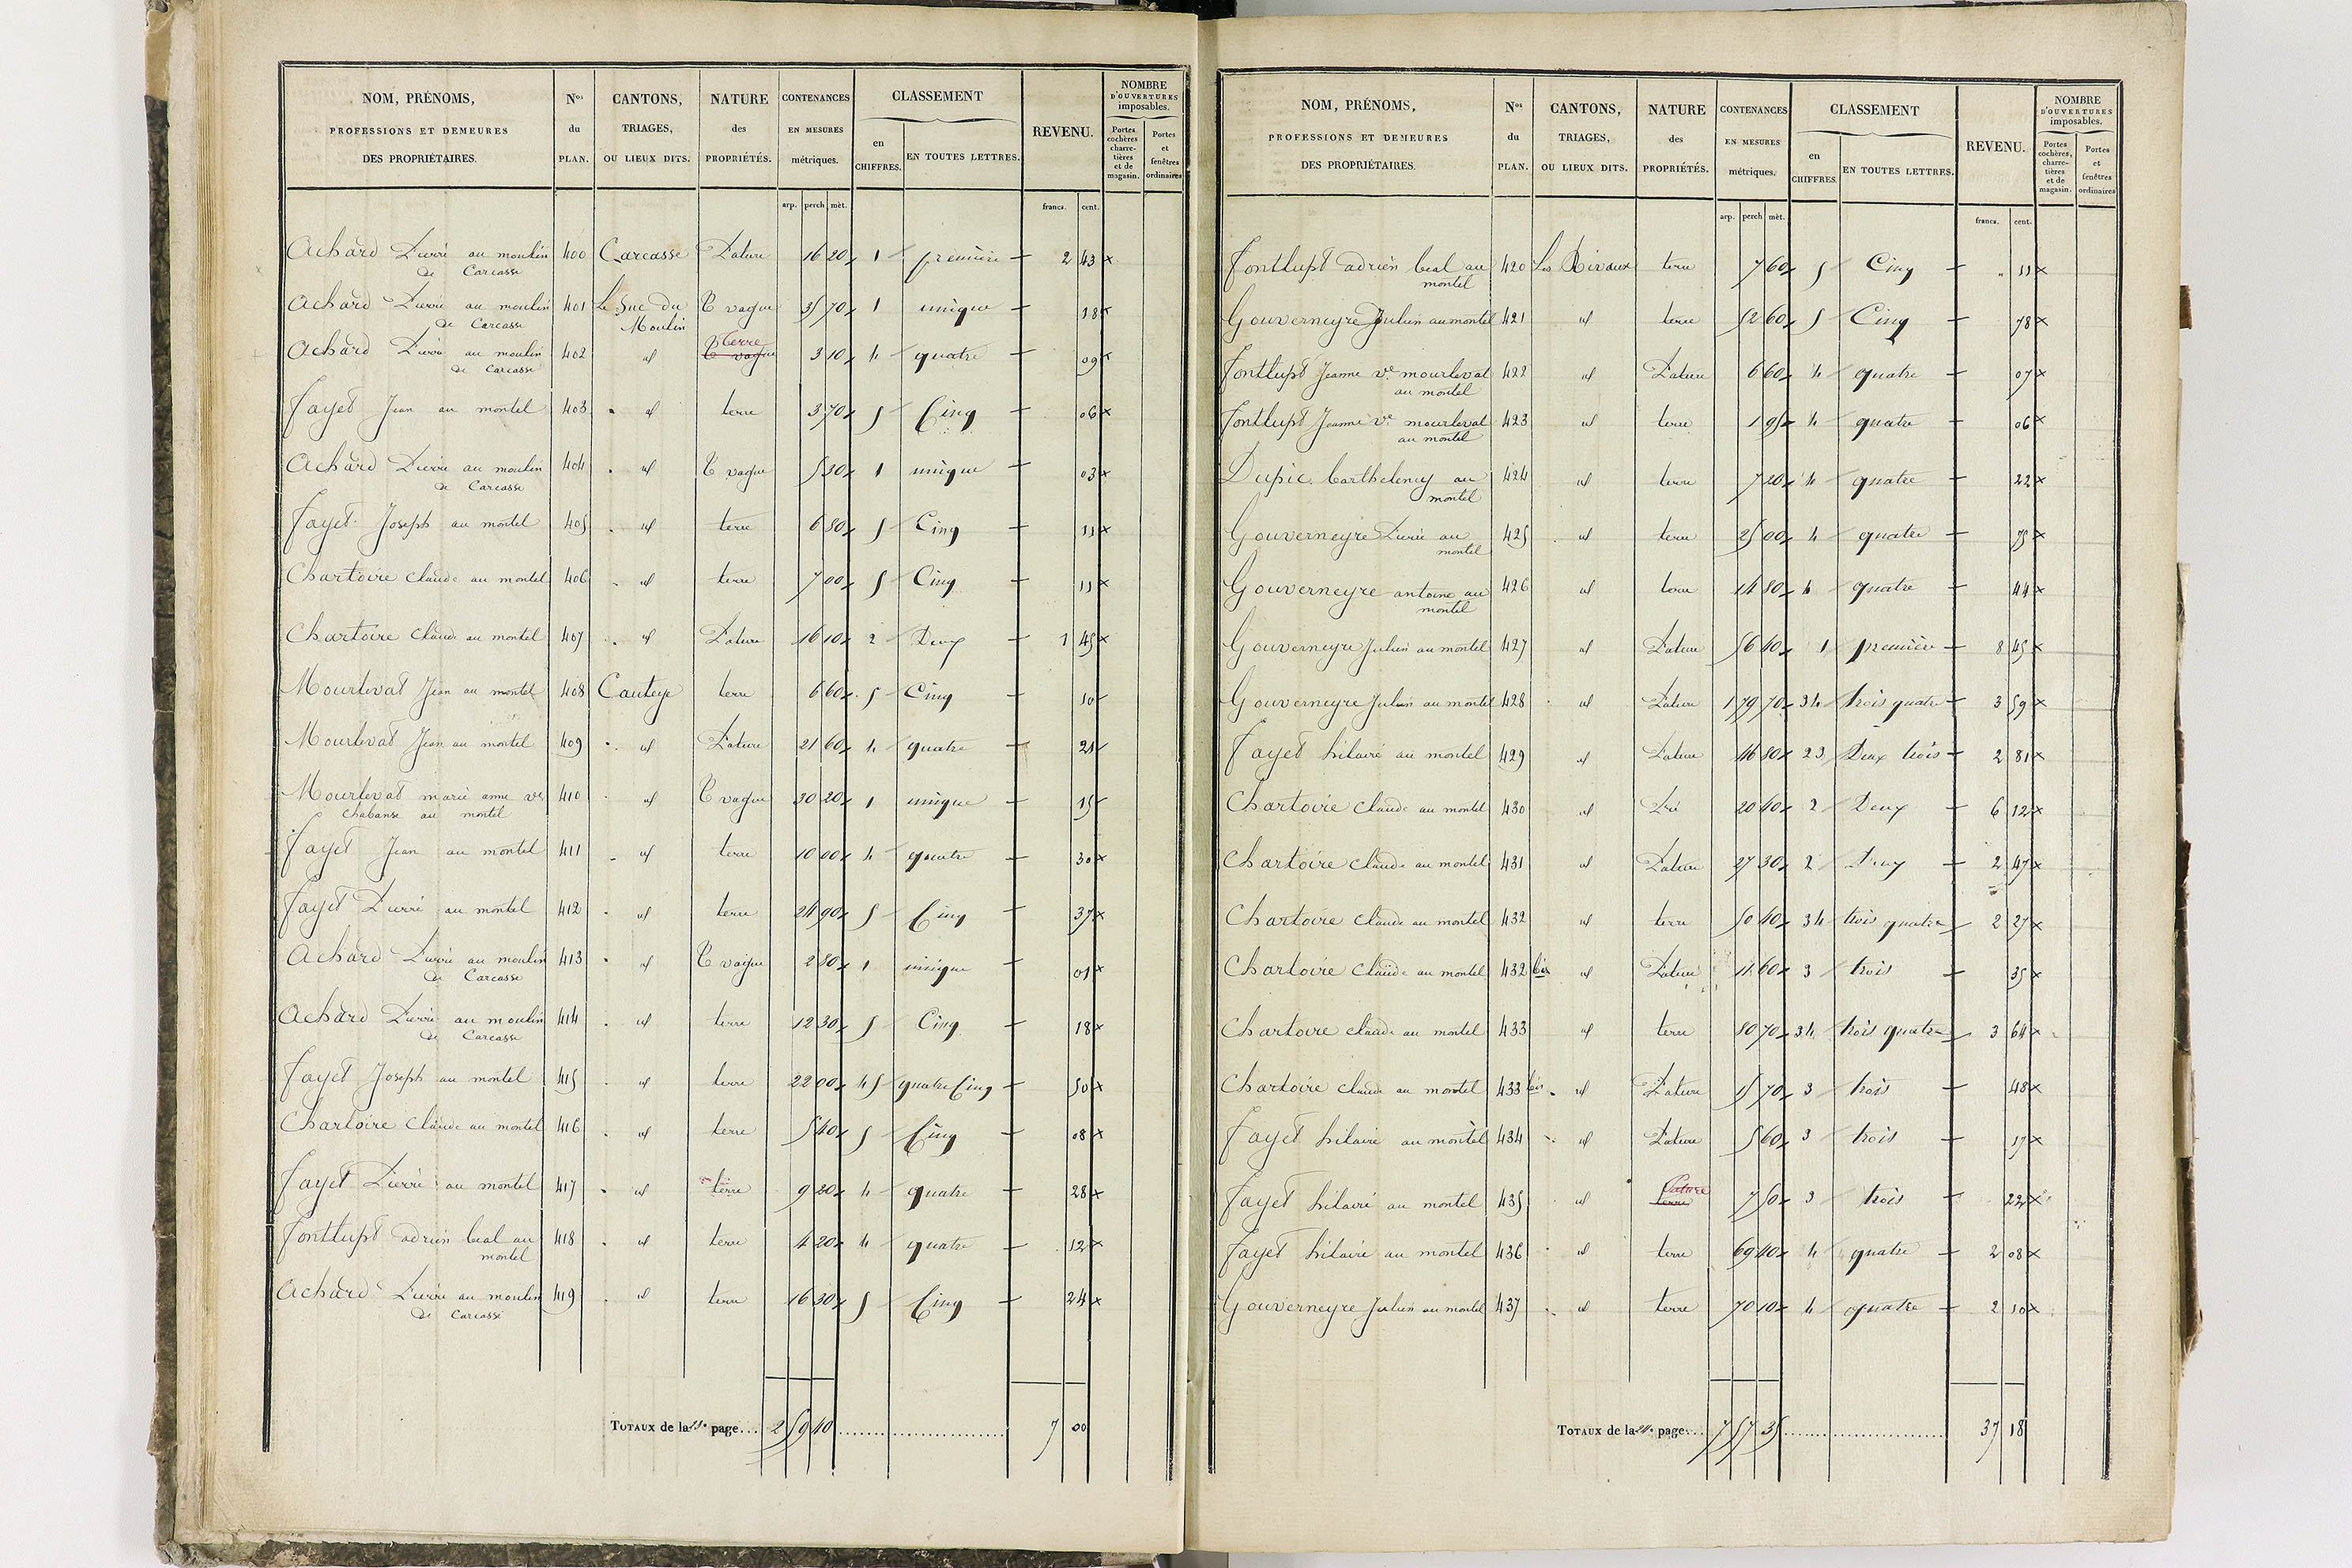 NOM, PRÉNOMS,
PROFESSIONS ET DEMEURES
DES PROPRIÉTAIRES.
Nos du PLAN.
CANTONS, TRIAGES, OU LIEUX DITS.
NATURE des PROPRIÉTÉS.
CONTENANCES EN MESURES métriques.
CLASSEMENT
en CHIFFRES.
EN TOUTES LETTRES.
REVENU.
NOMBRE D'OUVERTURES imposables.
Portes cochères charretières et de magasin.
Portes et fenêtres ordinaires
arp. perch. mèt. francs. cent.
Achard Pierre au moulin 400 Carcasse Pature 16 20 1 première 2 43
de Carcasse
Achard Pierre au moulin 401 Le Suc du T vague 35 70 1 unique 18
de Carcasse Moulin
Terre
Achard Pierre au moulin 402 id T vague 3 10 4 quatre 09
de Carcasse
Fayet Jean au montel 403 id terre 3 70 5 Cinq 06
Achard Pierre au moulin 404 id T vague 5 30 1 unique 03
de Carcasse
Fayet Joseph au montel 405 id terre 6 80 5 Cinq 11
Chartoire Claude au montel 406 id terre 7 00 5 Cinq 11
Chartoire Claude au montel 407 id Pature 16 10 2 Deux 1 45
Mourlevat Jean au montel 408 Cauteye terre 6 60 5 Cinq 10
Mourlevat Jean au montel 409 id Pature 21 60 4 quatre 21
Mourlevat marie anne ve 410 id T vague 30 20 1 unique 15
Chabanse au montel
Fayet Jean au montel 411 id terre 10 00 4 quatre 30
Fayet Pierre au montel 412 id terre 24 90 5 Cinq 37
Achard Pierre au moulin 413 id T vague 2 80 1 unique 01
de Carcasse
Achard Pierre au moulin 414 id terre 12 30 5 Cinq 18
de Carcasse
Fayet Joseph au montel 415 id terre 22 00 4 5 quatre Cinq 50
Chartoire Claude au montel 416 id terre 5 40 5 Cinq 08
Fayet Pierre au montel 417 id terre 9 20 4 quatre 28
Fontlupt adrien beal au 418 id terre 4 20 4 quatre 12
montel
Achard Pierre au moulin 419 id terre 16 30 5 Cinq 24
de Carcasse
TOTAUX de la 23e page... 2 59 40 7 00
NOM, PRÉNOMS,
PROFESSIONS ET DEMEURES
DES PROPRIÉTAIRES.
Nos du PLAN.
CANTONS, TRIAGES, OU LIEUX DITS.
NATURE des PROPRIÉTÉS.
CONTENANCES EN MESURES métriques.
CLASSEMENT
en CHIFFRES
EN TOUTES LETTRES.
REVENU.
NOMBRE D'OUVERTURES imposables.
Portes cochères, charretières et de magasin.
Portes et fenêtres ordinaires
arp. perch. mèt. francs. cent.
Fontlupt adrien beal au 420 Les Rivaux terre 7 60 5 Cinq " 11
montel
Gouverneyre Julien au montel 421 id terre 52 60 5 Cinq 78
Fontlupt Jeanne ve mourlevat 422 id Pature 6 60 4 quatre 07
au montel
Fontlupt Jeanne ve mourlevat 423 id terre 1 95 4 quatre 06
au montel
Dupic barthelemy au 424 id terre 7 20 4 quatre 22
montel
Gouverneyre Pierre au 425 id terre 25 00 4 quatre 75
montel
Gouverneyre antoine au 426 id terre 14 80 4 quatre 44
montel
Gouverneyre Julien au montel 427 id Pature 56 40 1 première 8 45
Gouverneyre Julien au montel 428 id Pature 1 79 70 3 4 trois quatre 3 59
Fayet hilaire au montel 429 id Pature 46 80 2 3 Deux trois 2 81
Chartoire Claude au montel 430 id Pré 20 40 2 Deux 6 12
Chartoire Claude au montel 431 id Pature 27 30 2 Deux 2 47
Chartoire Claude au montel 432 id terre 50 40 3 4 trois quatre 2 27
Chartoire Claude au montel 432 bis id Pature 11 60 3 trois 35
Chartoire Claude au montel 433 id terre 80 70 3 4 trois quatre 3 64
Chartoire Claude au montel 433 bis id Pature 15 70 3 trois 48
Fayet hilaire au montel 434 id Pature 5 60 3 trois 17
Pature
Fayet hilaire au montel 435 id terre 7 50 3 trois 22
Fayet hilaire au montel 436 id terre 69 40 4 quatre 2 08
Gouverneyre Julien au montel 437 id terre 70 10 4 quatre 2 10
TOTAUX de la 24e page... 7 57 35 37 18